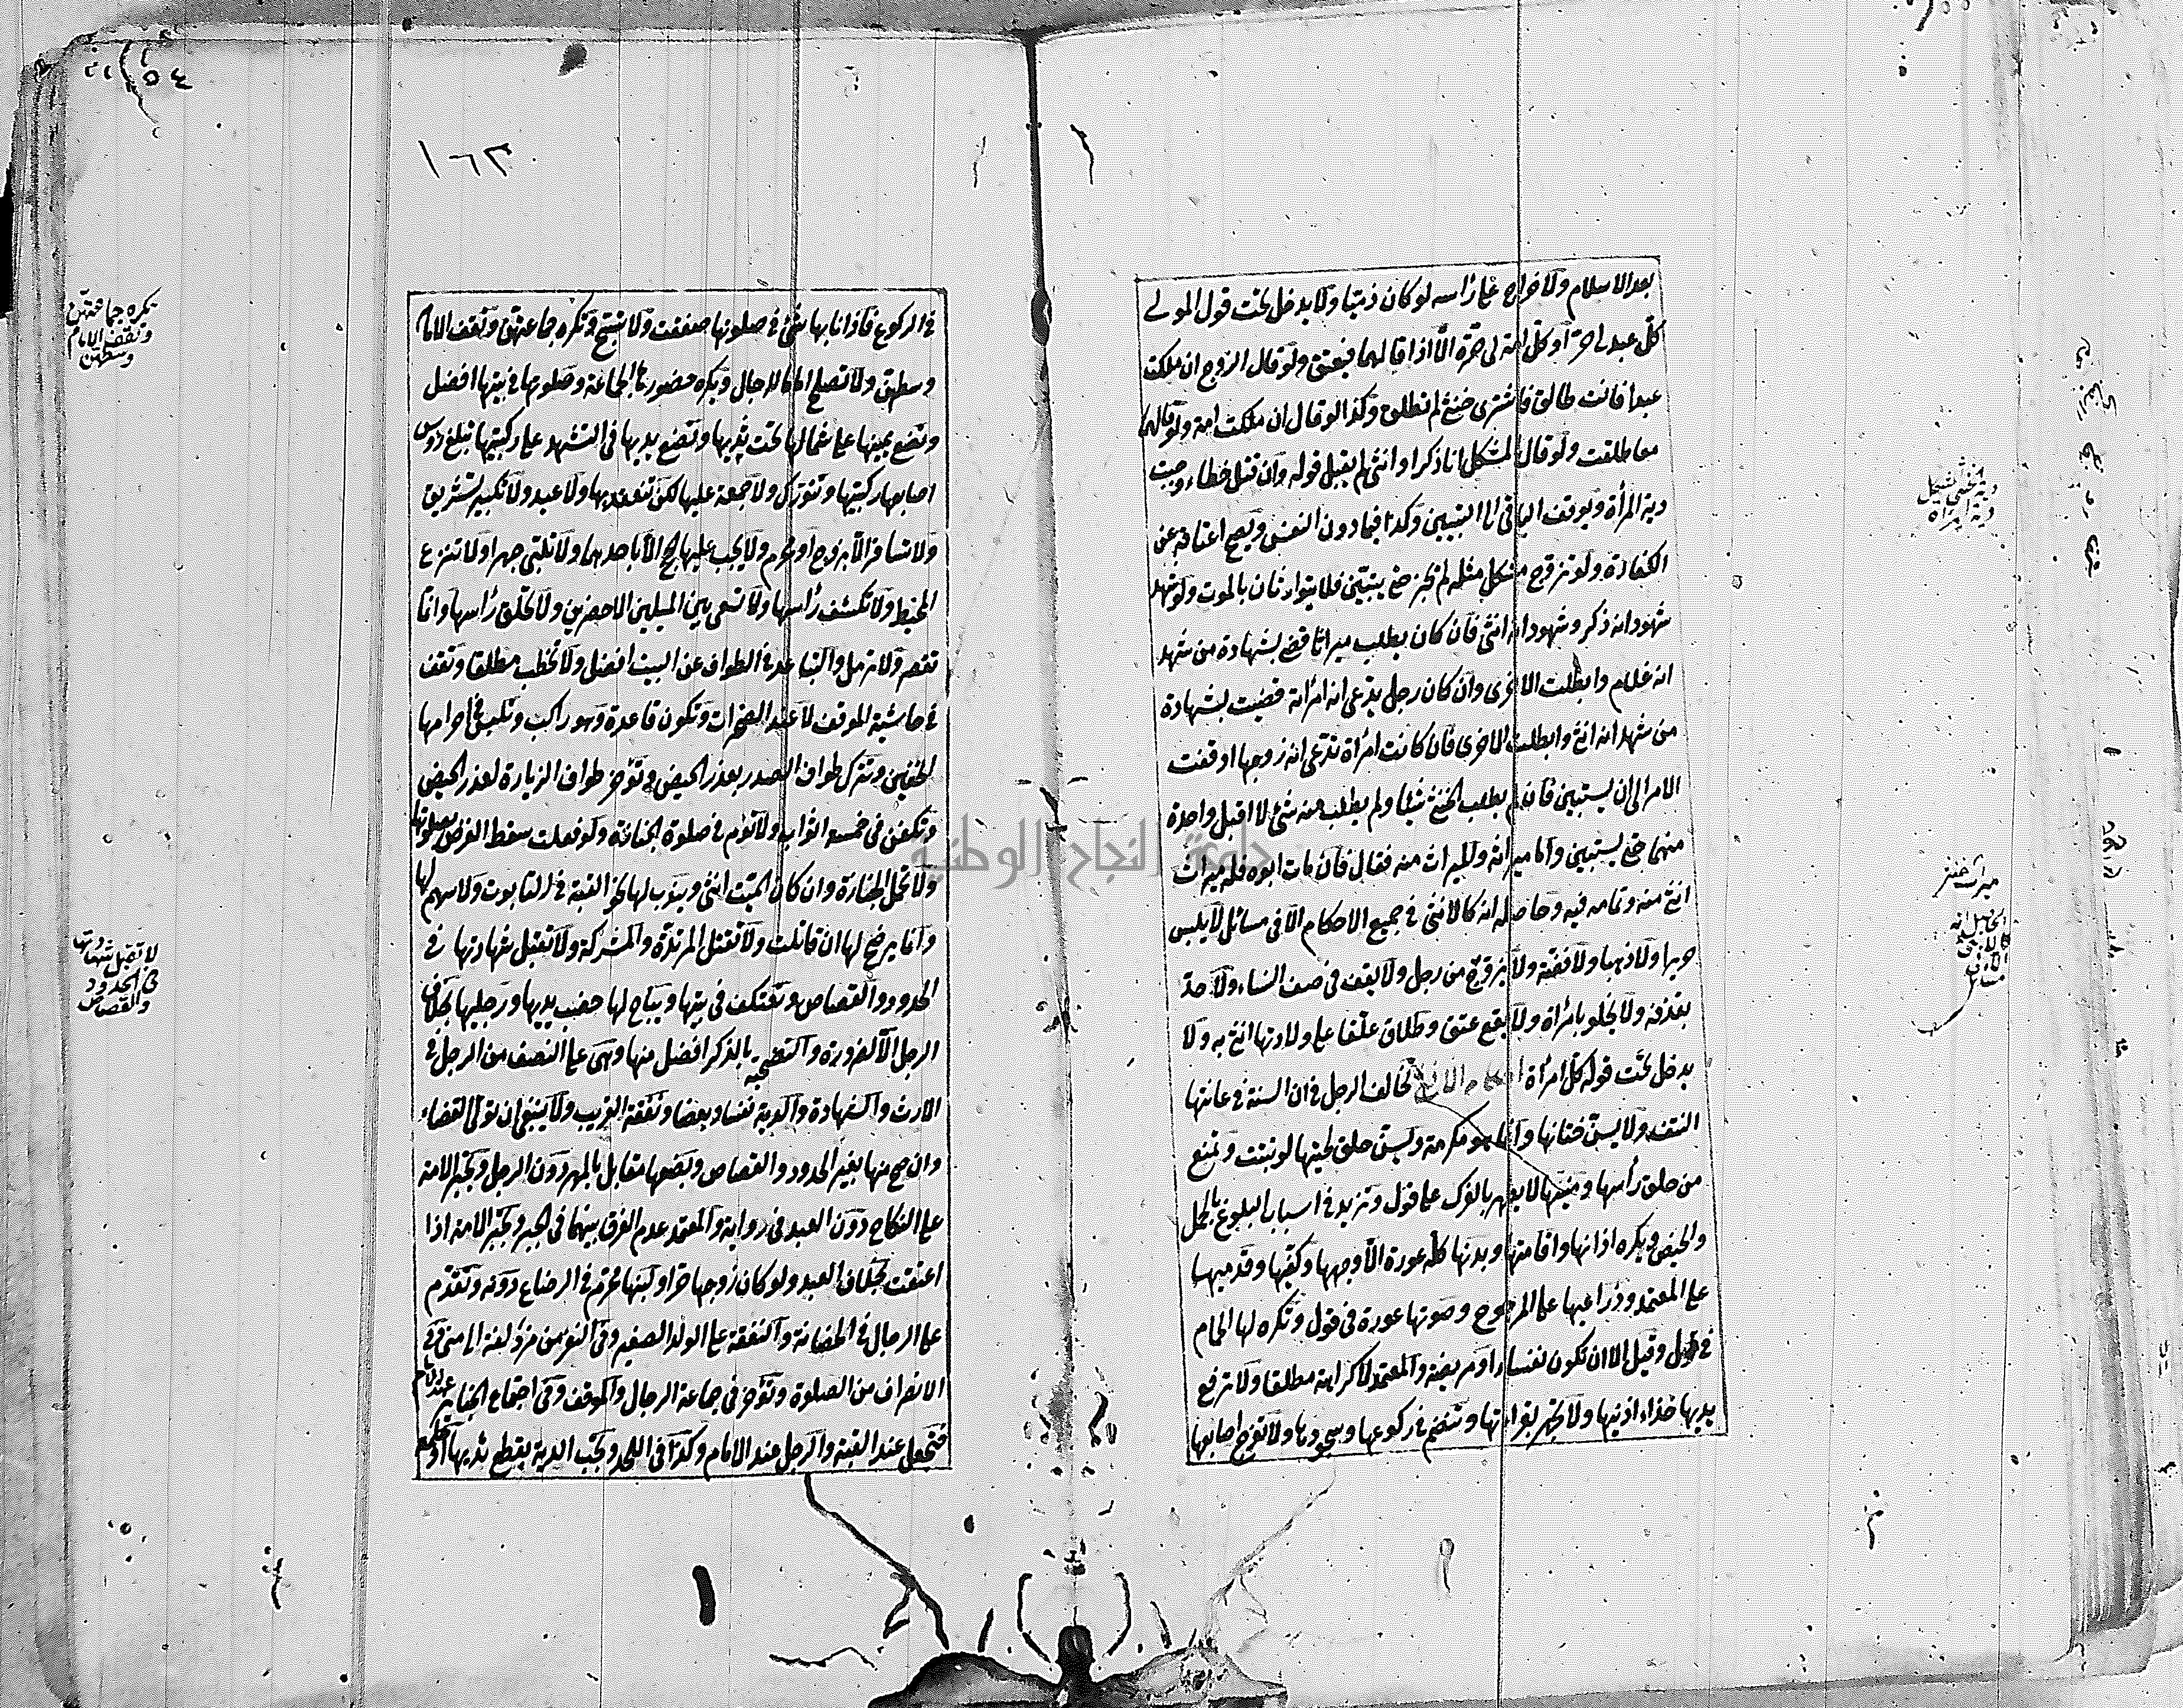 بعد الاسلام ولا خراج على راسه لو كان ذميا ولا يدخل تحت قول المولى
كل عبد لى حر او كل امة لى حرة الا اذا قالهما فيعتق ولو قال الزوج ان ملكت
عبدا فانت طالق فاشترى خنثى لم تطلق وكذا لو قال ان ملكت امة ولو قالهما
معا طلقت ولو قال المشكل انا ذكر او انثى لم يقبل قوله وان قتل خطاء وجبت
دية المرأة ويوقف الباقى الى التبيين وكذا فيما دون النفس ويصح اعتاقه عن
الكفارة ولو تزوج مشكل مثله لم يجز حتى يتبين فلا يتوارثان بالموت ولو شهد
شهود انه ذكر وشهود انه انثى فان كان يطلب ميراثا قضى بشهادة من شهد
انه غلام وابطلت الاخرى وان كان رجل يدعى انه امرأته قضيت بشهادة
من شهد انه انثى وابطلت الاخرى فان كانت امرأة تدعى انه زوجها اوقفت
الامر الى ان يستبين فان لم يطلب الخنثى شيئا ولم يطلب منه شئ لا اقبل واحدة
منهما حتى يستبين واما ميراثه والميراث منه فقال فان مات ابوه فله ميراث
انثى منه وتمامه فيه وحاصله انه كالانثى فى جميع الاحكام الا فى مسائل لا يلبس
حريرا ولا ذهبا ولا فضة ولا يزوج من رجل ولا يقف فى صف النساء ولا حد
بقذفه ولا يخلو بامرأة ولا يقع عتق وطلاق علقا على ولادتها انثى به ولا
يدخل تحت قوله كل امرأة احكام الانثى تخالف الرجل فى ان السنة فى عانتها
النتف ولا يسن ختانها وانما هو مكرمة ويسن حلق لحيتها لو نبتت وتمنع
من حلق رأسها ومنيها لا يطهر بالفرك على قول وتزيد فى اسباب البلوغ بالحبل
والحيض ويكره اذانها واقامتها وبدنها كله عورة الا وجهها وكفيها وقدميها
على المعتمد وذراعيها على المرجوح وصوتها عورة فى قول وتكره لها الحمام
فى قول وقيل الا ان تكون نفساء او مريضة والمعتمد لا كراهة مطلقا ولا ترفع
يديها حذاء اذنيها ولا تجهر بقراءتها وتنضم فى ركوعها وسجودها ولا تفرج اصابعها
دية الخنثى المشكل
دية المرأة
ميراث خنثى
الحاصل انه
كالانثى
الا فى
مسائل
١٦٣
فى الركوع فاذا نابها شئ فى صلوتها صفقت ولا تسبح وتكره جماعتهن وتقف الامام
وسطهن ولا تصلح اماما للرجال ويكره حضورها الجماعة وصلوتها فى بيتها افضل
وتضع يمينها على شمالها تحت ثديها وتضع يديها فى التشهد على ركبتيها تبلغ رؤس
اصابعها ركبتيها وتتورك ولا جمعة عليها لكن تنعقد بها ولا عيد ولا تكبير تشريق
ولا تسافر الا بزوج او محرم ولا يجب عليها الحج الا باحدهما ولا تلبى جهرا ولا تنزع
المخيط ولا تكشف رأسها ولا تسعى بين الميلين الاخضرين ولا تحلق رأسها وانما
تقصر ولا ترمل والتباعد فى الطواف عن البيت افضل ولا تخطب مطلقا وتقف
فى حاشية الموقف لا عند الصخرات وتكون قاعدة وهو راكب وتلبس فى احرامها
الخفين وتترك طواف الصدر بعذر الحيض وتؤخر طواف الزيارة لعذر الحيض
وتكفن فى خمسة اثواب ولا تؤم فى صلوة الجنازة ولو فعلت سقط الفرض بصلوتها
ولا تحمل الجنازة وان كان الميت انثى ويندب لها نحو القبة فى التابوت ولا سهم لها
وانما يرضخ لها ان قاتلت ولا تقتل المرتدة والمشركة ولا تقبل شهادتها فى
الحدود والقصاص وتعتكف فى بيتها ويباح لها خضب يديها ورجليها بخلاف
الرجل الا لضرورة والتضحية بالذكر افضل منها وهى على النصف من الرجل فى
الارث والشهادة والدية نفسا وبعضا ونفقة القريب ولا ينبغى ان تولى القضاء
وان صح منها بغير الحدود والقصاص وبضعها مقابل بالمهر دون الرجل وتجبر الامة
على النكاح دون العبد فى رواية والمعتمد عدم الفرق بينهما فى الجبر وتخير الامة اذا
اعتقت بخلاف العبد ولو كان زوجها حرا ولبنها محرم فى الرضاع دونه وتقدم
على الرجال فى الحضانة والنفقة على الولد الصغير وفى النفر من مزدلفة الى منى وفى
الانصراف من الصلوة وتؤخر فى جماعة الرجال والموقف وفى اجتماع الجنائز عند الامام
فتجعل عند القبلة والرجل عند الامام وكذا فى اللحد وتجب الدية بقطع ثديها او حلمته
تكره جماعتهن
وتقف الامام
وسطهن
لا تقبل شهادتها
فى الحدود
والقصاص
جامعة النجاح الوطنية